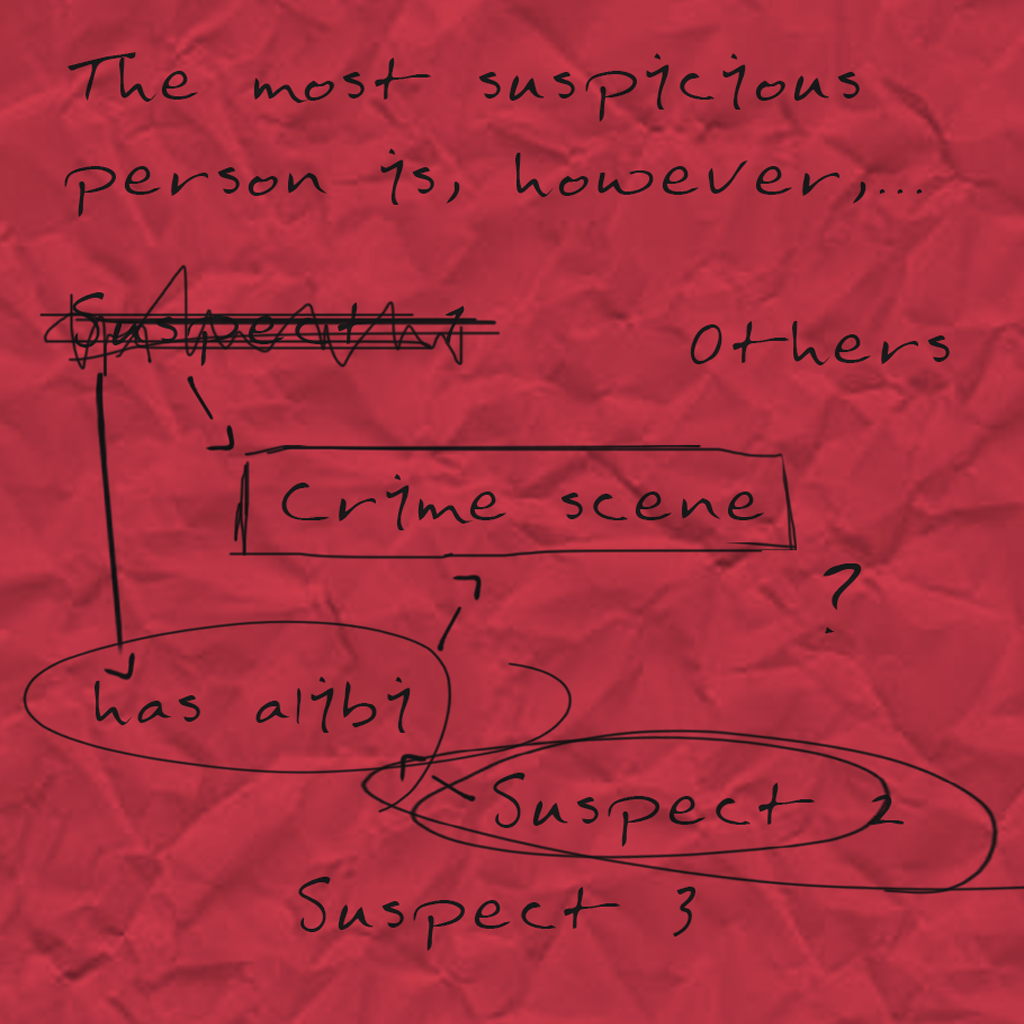 The most suspicious
person is, however,...
Suspect 1
Others
Crime scene
?
has alibi
Suspect 2
Suspect 3